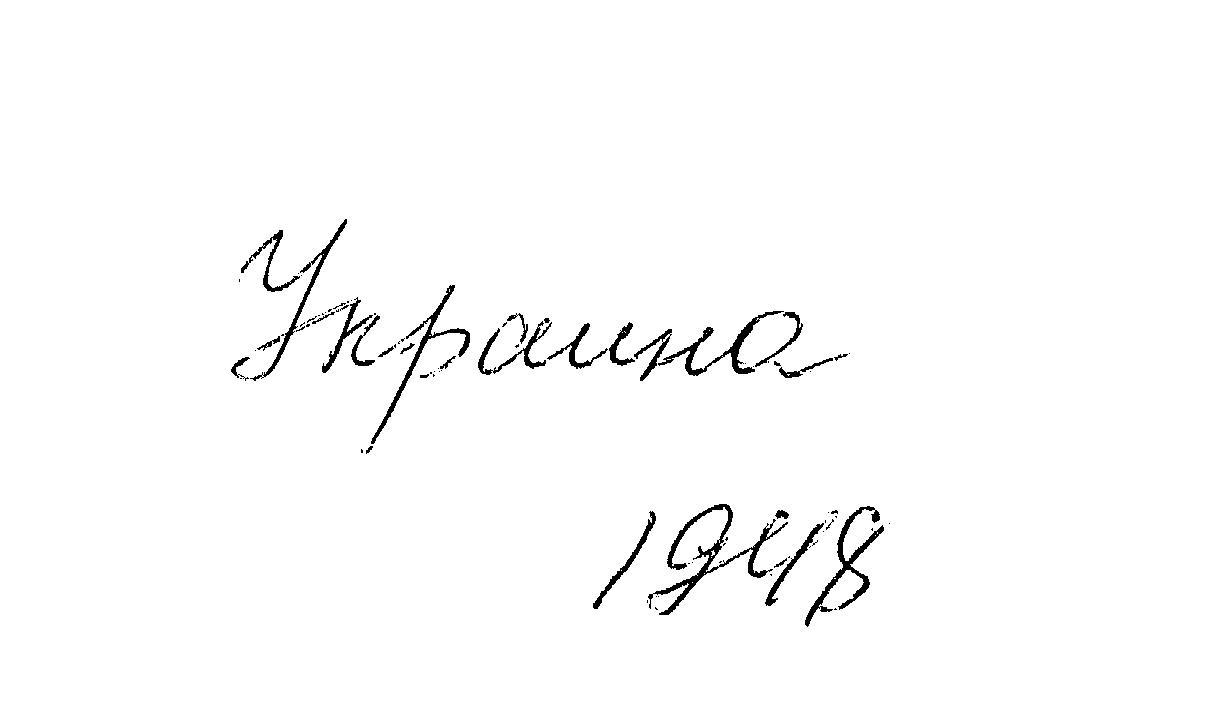 Украина
1948